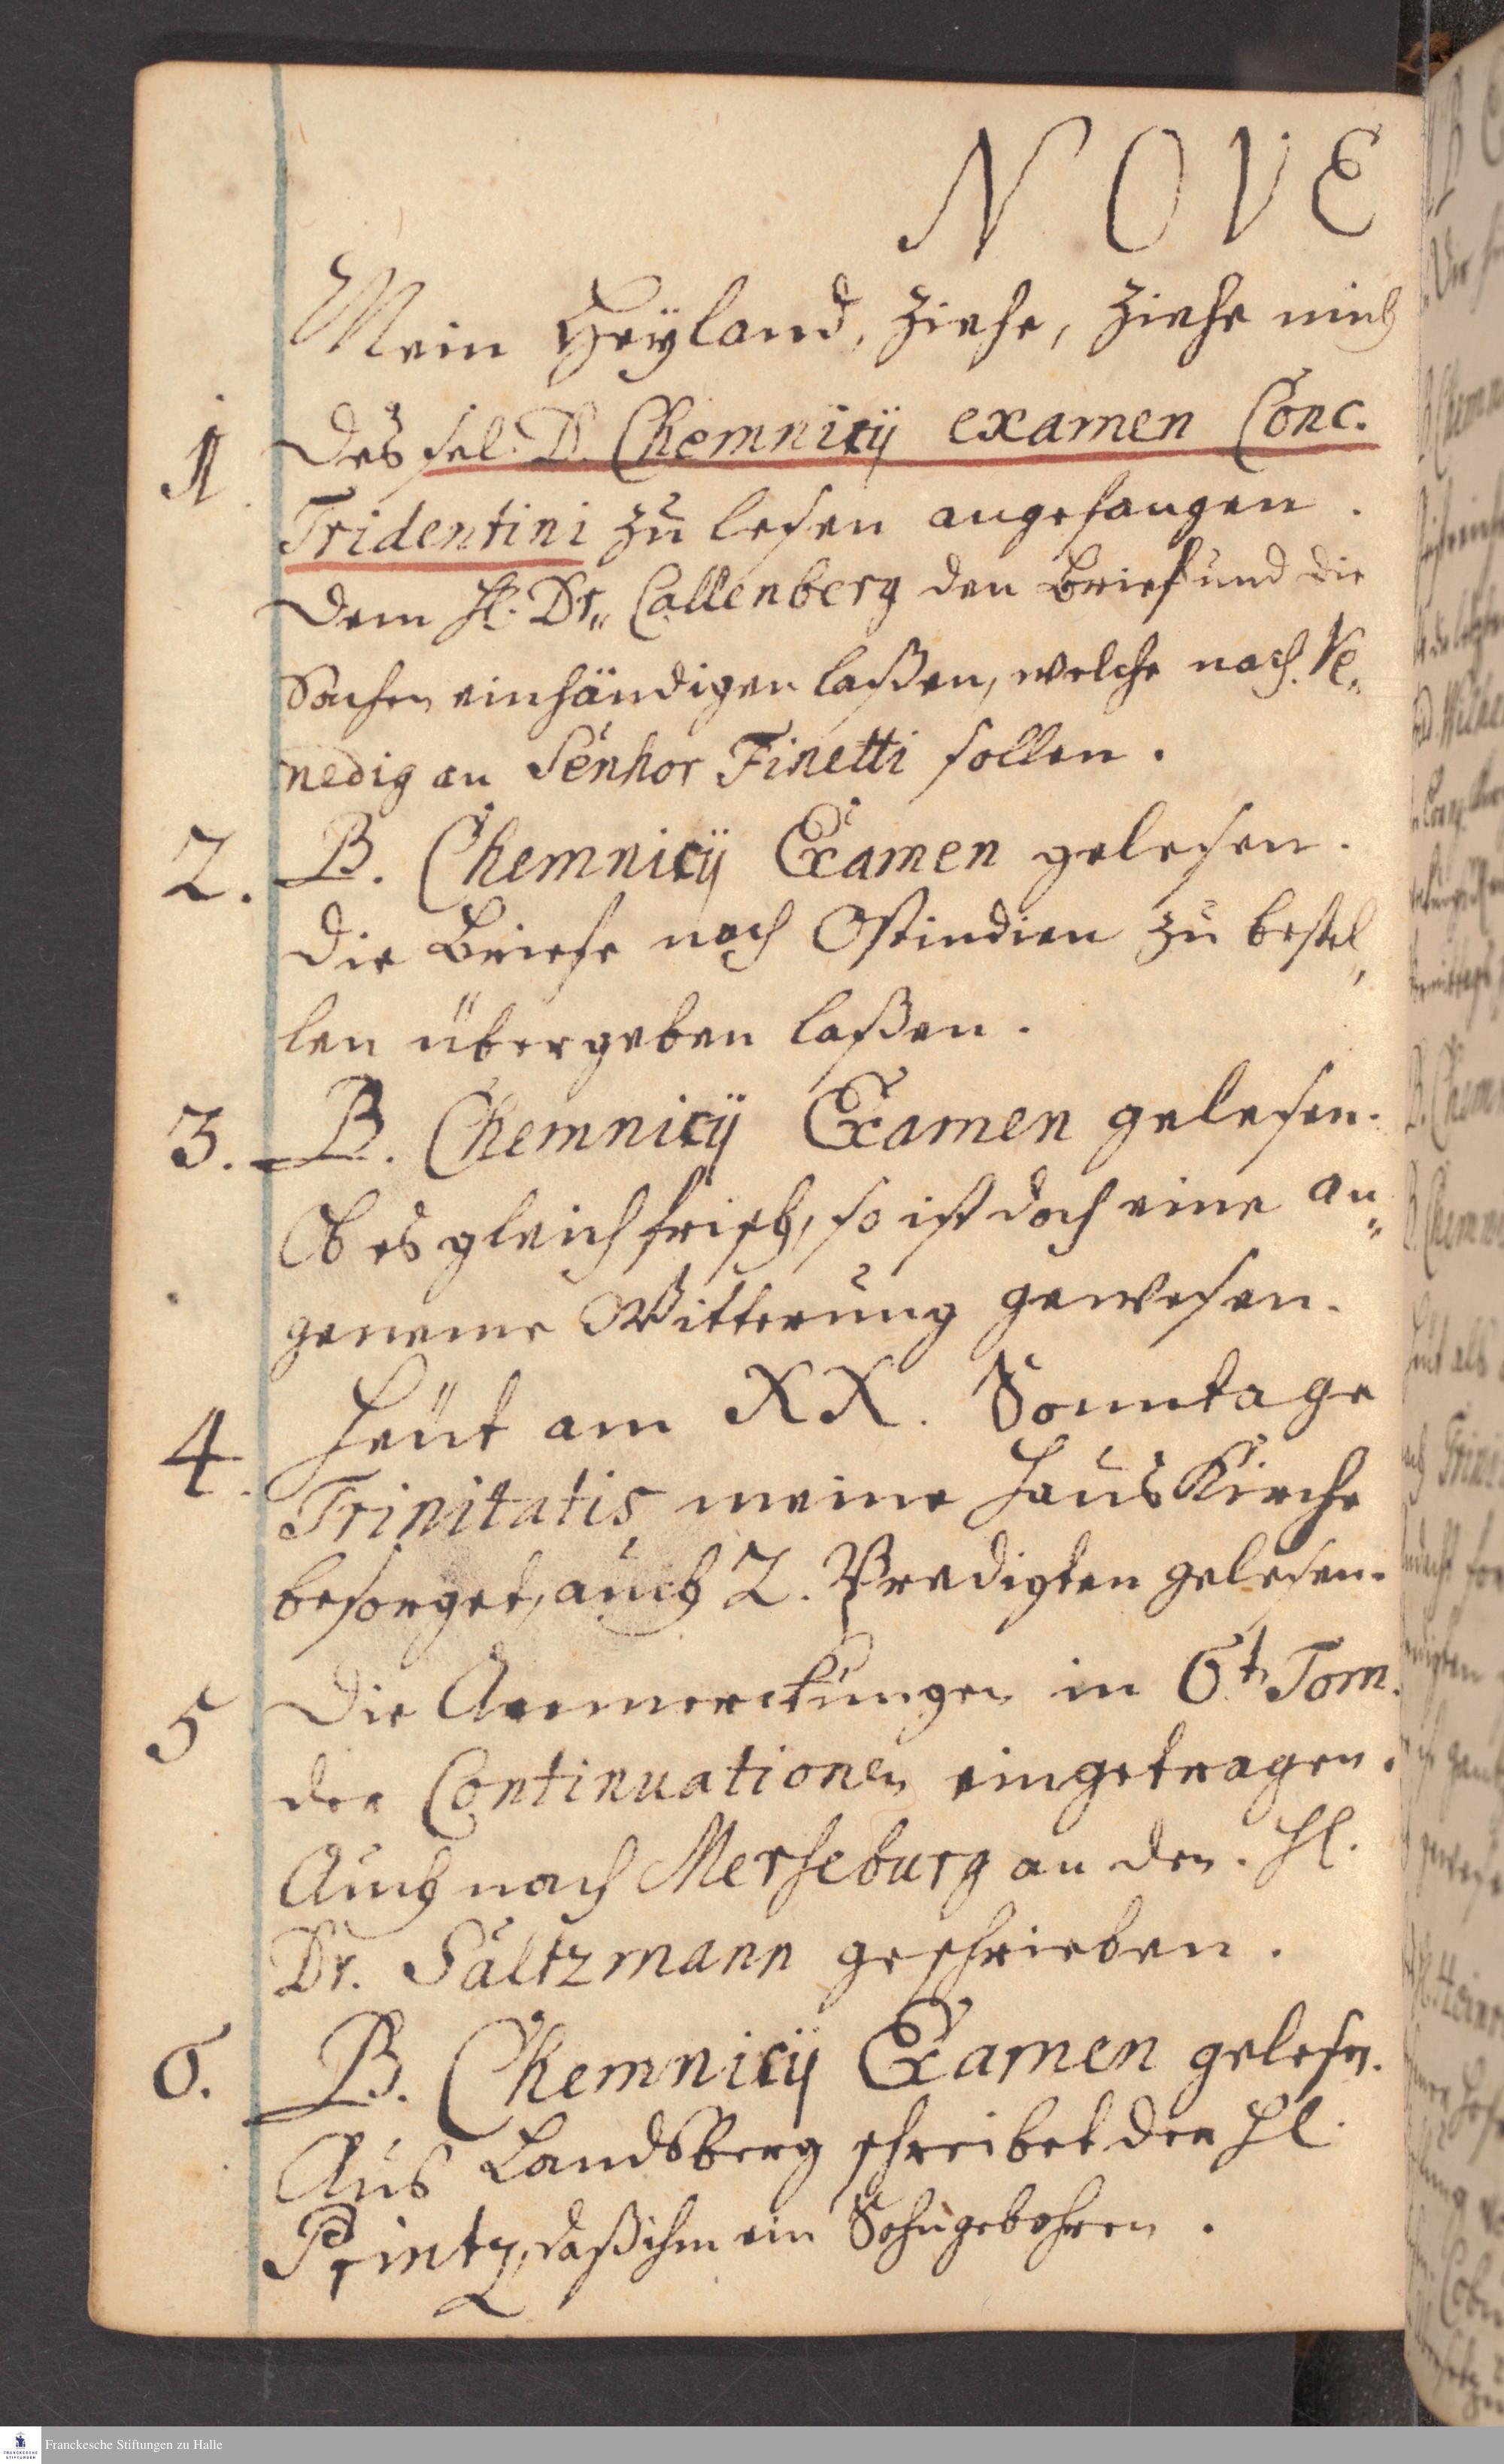 NOVE
Mein Heyland, ziehe, ziehe mich
1. Des sel. D. Chemnicij examen Conc.
Tridentini zu lesen angefangen.
Dem H. Dr. Callenberg den Brief und die
Sachen einhändigen laßen, welche nach Ve„
nedig an Senhor Finetti sollen.
2. B. Chemnicij Examen gelesen.
Die Briefe nach Ostindien zu bestel„
len übergeben laßen.
3. B. Chemnicij Examen gelesen.
Ob es gleich frisch, so ist doch eine an„
geneme Witterung gewesen.
4. Heüt am XX. Sonntage
Trinitatis meine HausKirche
besorget, auch 2. Predigten gelesen.
5 Die Anmerckungen in 6t. Tom.
der Continuationen eingetragen.
Auch nach Merseburg an den H.
Dr. Saltzmann geschrieben.
6. B. Chemnicij Examen gelesen.
Aus Landsberg schreibet der H.
Printz, daß ihm ein Sohn gebohren.
FRANCKESCHE STIFTUNGEN
Franckesche Stiftungen zu Halle